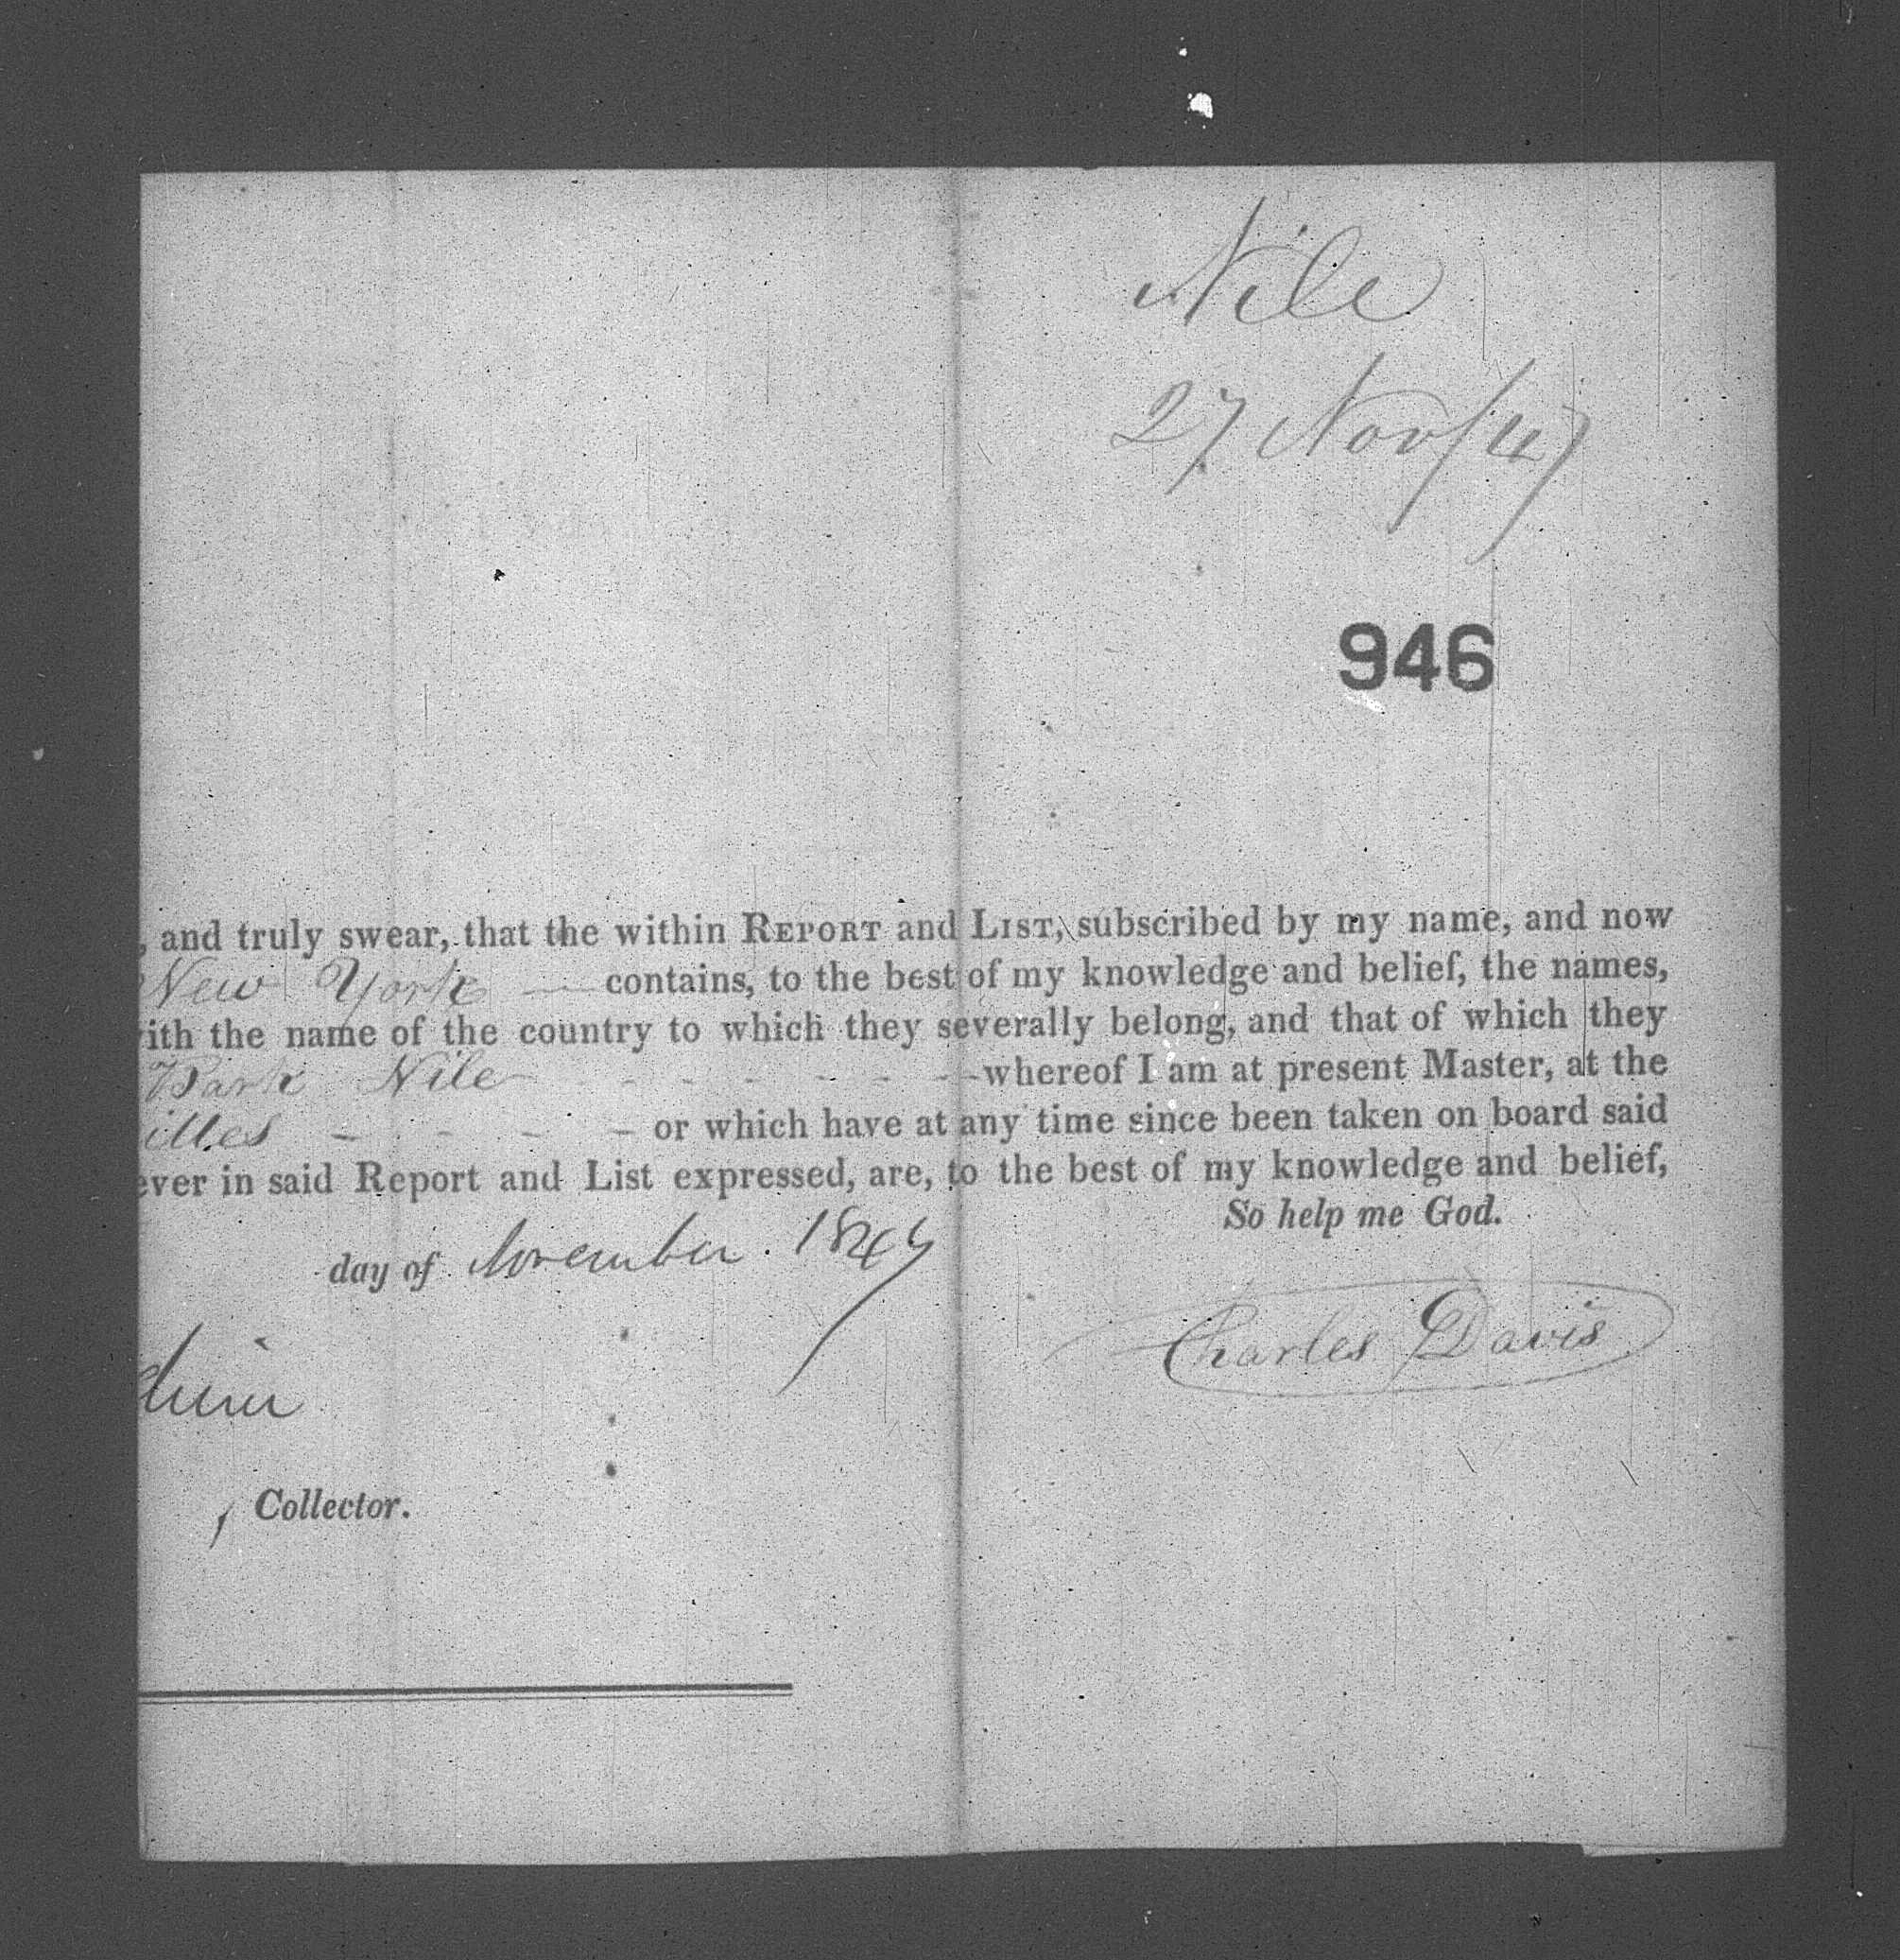 Nile
27 Nov/47
946
, and truly swear, that the within REPORT and LIST, subscribed by my name, and now
New York — contains, to the best of my knowledge and belief, the names,
ith the name of the country to which they severally belong, and that of which they
Bark Nile - - - - - - - whereof I am at present Master, at the
illes - - - - or which have at any time since been taken on board said
ever in said Report and List expressed, are, to the best of my knowledge and belief,
So help me God.
day of November. 1847
Charles Davis
, Collector.